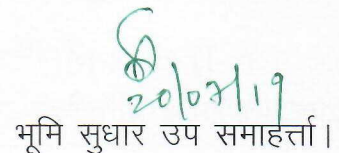 20/07/19
भूमि सुधार उप समाहर्त्ता।